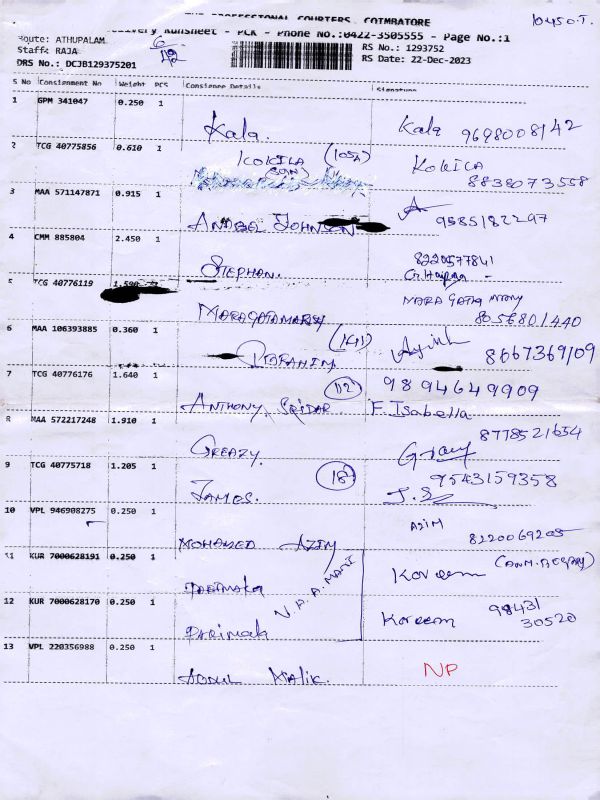 THE PROFESSIONAL COURIERS, COIMBATORE
10450T.
Delivery Runsheet - PLK - Phone No.:0422-3505555 - Page No.:1
Route: ATHUPALAM
Staff: RAJA
DRS No.: DCJB129375201
RS No.: 1293752
RS Date: 22-Dec-2023
S No Consignment No Weight PCS Consignee Details Signature
1 GPM 341047 0.250 1 Kala. Kala 9698008142
2 TCG 40775856 0.610 1 KOKILA (105A) KOKILA 8838073558
3 MAA 571147871 0.915 1 JOHNSON 9585182297
4 CMM 885804 2.450 1 STEPHAN. 8220577841
5 TCG 40776119 1.590 1 MARAGATAMANY MARAGATHA MANY 8056801440
6 MAA 106393885 0.360 1 IBRAHIM (141) 8667369109
7 TCG 40776176 1.640 1 ANTHONY SRIDAR 112 9894649909 F. Isabella
8 MAA 572217248 1.910 1 GREAZY. 8778521654
9 TCG 40775718 1.205 1 JAMES. 18 9543159358 J.S
10 VPL 946908275 0.250 1 MOHAMED AZIM AZIM 8220069205
11 KUR 7000628191 0.250 1 N.A.A. MANI Koreem
12 KUR 7000628170 0.250 1 Parimala Koreem 98431 30520
13 VPL 220356988 0.250 1 ABDUL MALIK. NP